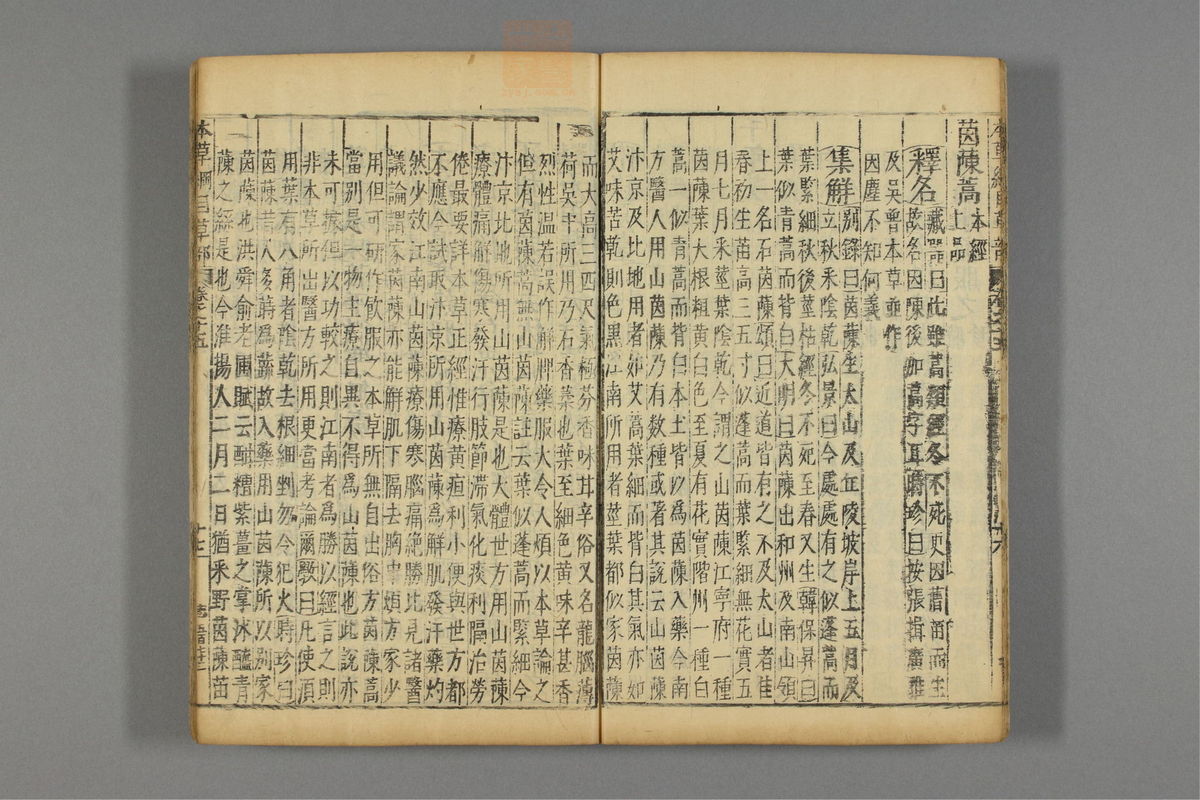 茵蔯蒿本經上品
釋名藏器曰此雖蒿類經冬不死更因舊苗而生
故名因陳後加蒿字耳時珍曰按張揖廣雅
及吳普本草並作
因塵不知何義
集解別錄曰茵蔯生太山及丘陵坡岸上五月及
立秋采陰乾弘景曰今處處有之似蓬蒿而
葉緊細秋後莖枯經冬不死至春又生韓保昇曰
葉似青蒿而背白大明曰茵蔯出和州及南山嶺
上一名石茵蔯頌曰近道皆有之不及太山者佳
春初生苗高三五寸似蓬蒿而葉緊細無花實五
月七月采莖葉陰乾今謂之山茵蔯江寧府一種
茵蔯葉大根粗黃白色至夏有花實階州一種白
蒿一似青蒿而背白本土皆以爲茵蔯入藥今南
方醫人用山茵蔯乃有數種或著其說云山茵蔯
汴京及北地用者如艾蒿葉細而背白其氣亦如
艾味苦乾則色黑江南所用者莖葉都似家茵蔯
而大高三四尺氣極芬香味甘辛俗又名龍腦薄
荷吳中所用乃石香葇也葉至細色黃味辛甚香
烈性溫若誤作解脾藥服大令人煩以本草論之
但有茵蔯蒿無山茵蔯註云葉似蓬蒿而緊細今
汴京北地所用山茵蔯是也大體世方用山茵蔯
療體痛解傷寒發汗行肢節滯氣化痰利膈治勞
倦最要詳本草正經惟療黃疸利小便與世方都
不應今試取汴京所用山茵蔯爲解肌發汗藥灼
然少效江南山茵蔯療傷寒腦痛絕勝比見諸醫
議論謂家茵蔯亦能解肌下膈去胸中煩方家少
用但可研作飲服之本草所無自出俗方茵蔯蒿
當別是一物主療自異不得爲山茵蔯也此說亦
未可據但以功較之則江南者爲勝以經言之則
非本草所出醫方所用更當考論爾斅曰凡使須
用葉有八角者陰乾去根細剉勿令犯火時珍曰
茵蔯昔人多蒔爲蔬故入藥用山茵蔯所以別家
茵蔯也洪舜俞老圃賦云酣糟紫薑之掌沐醯青
蔯之絲是也今淮揚人二月二日猶采野茵蔯苗
本草綱目草部
卷之十五